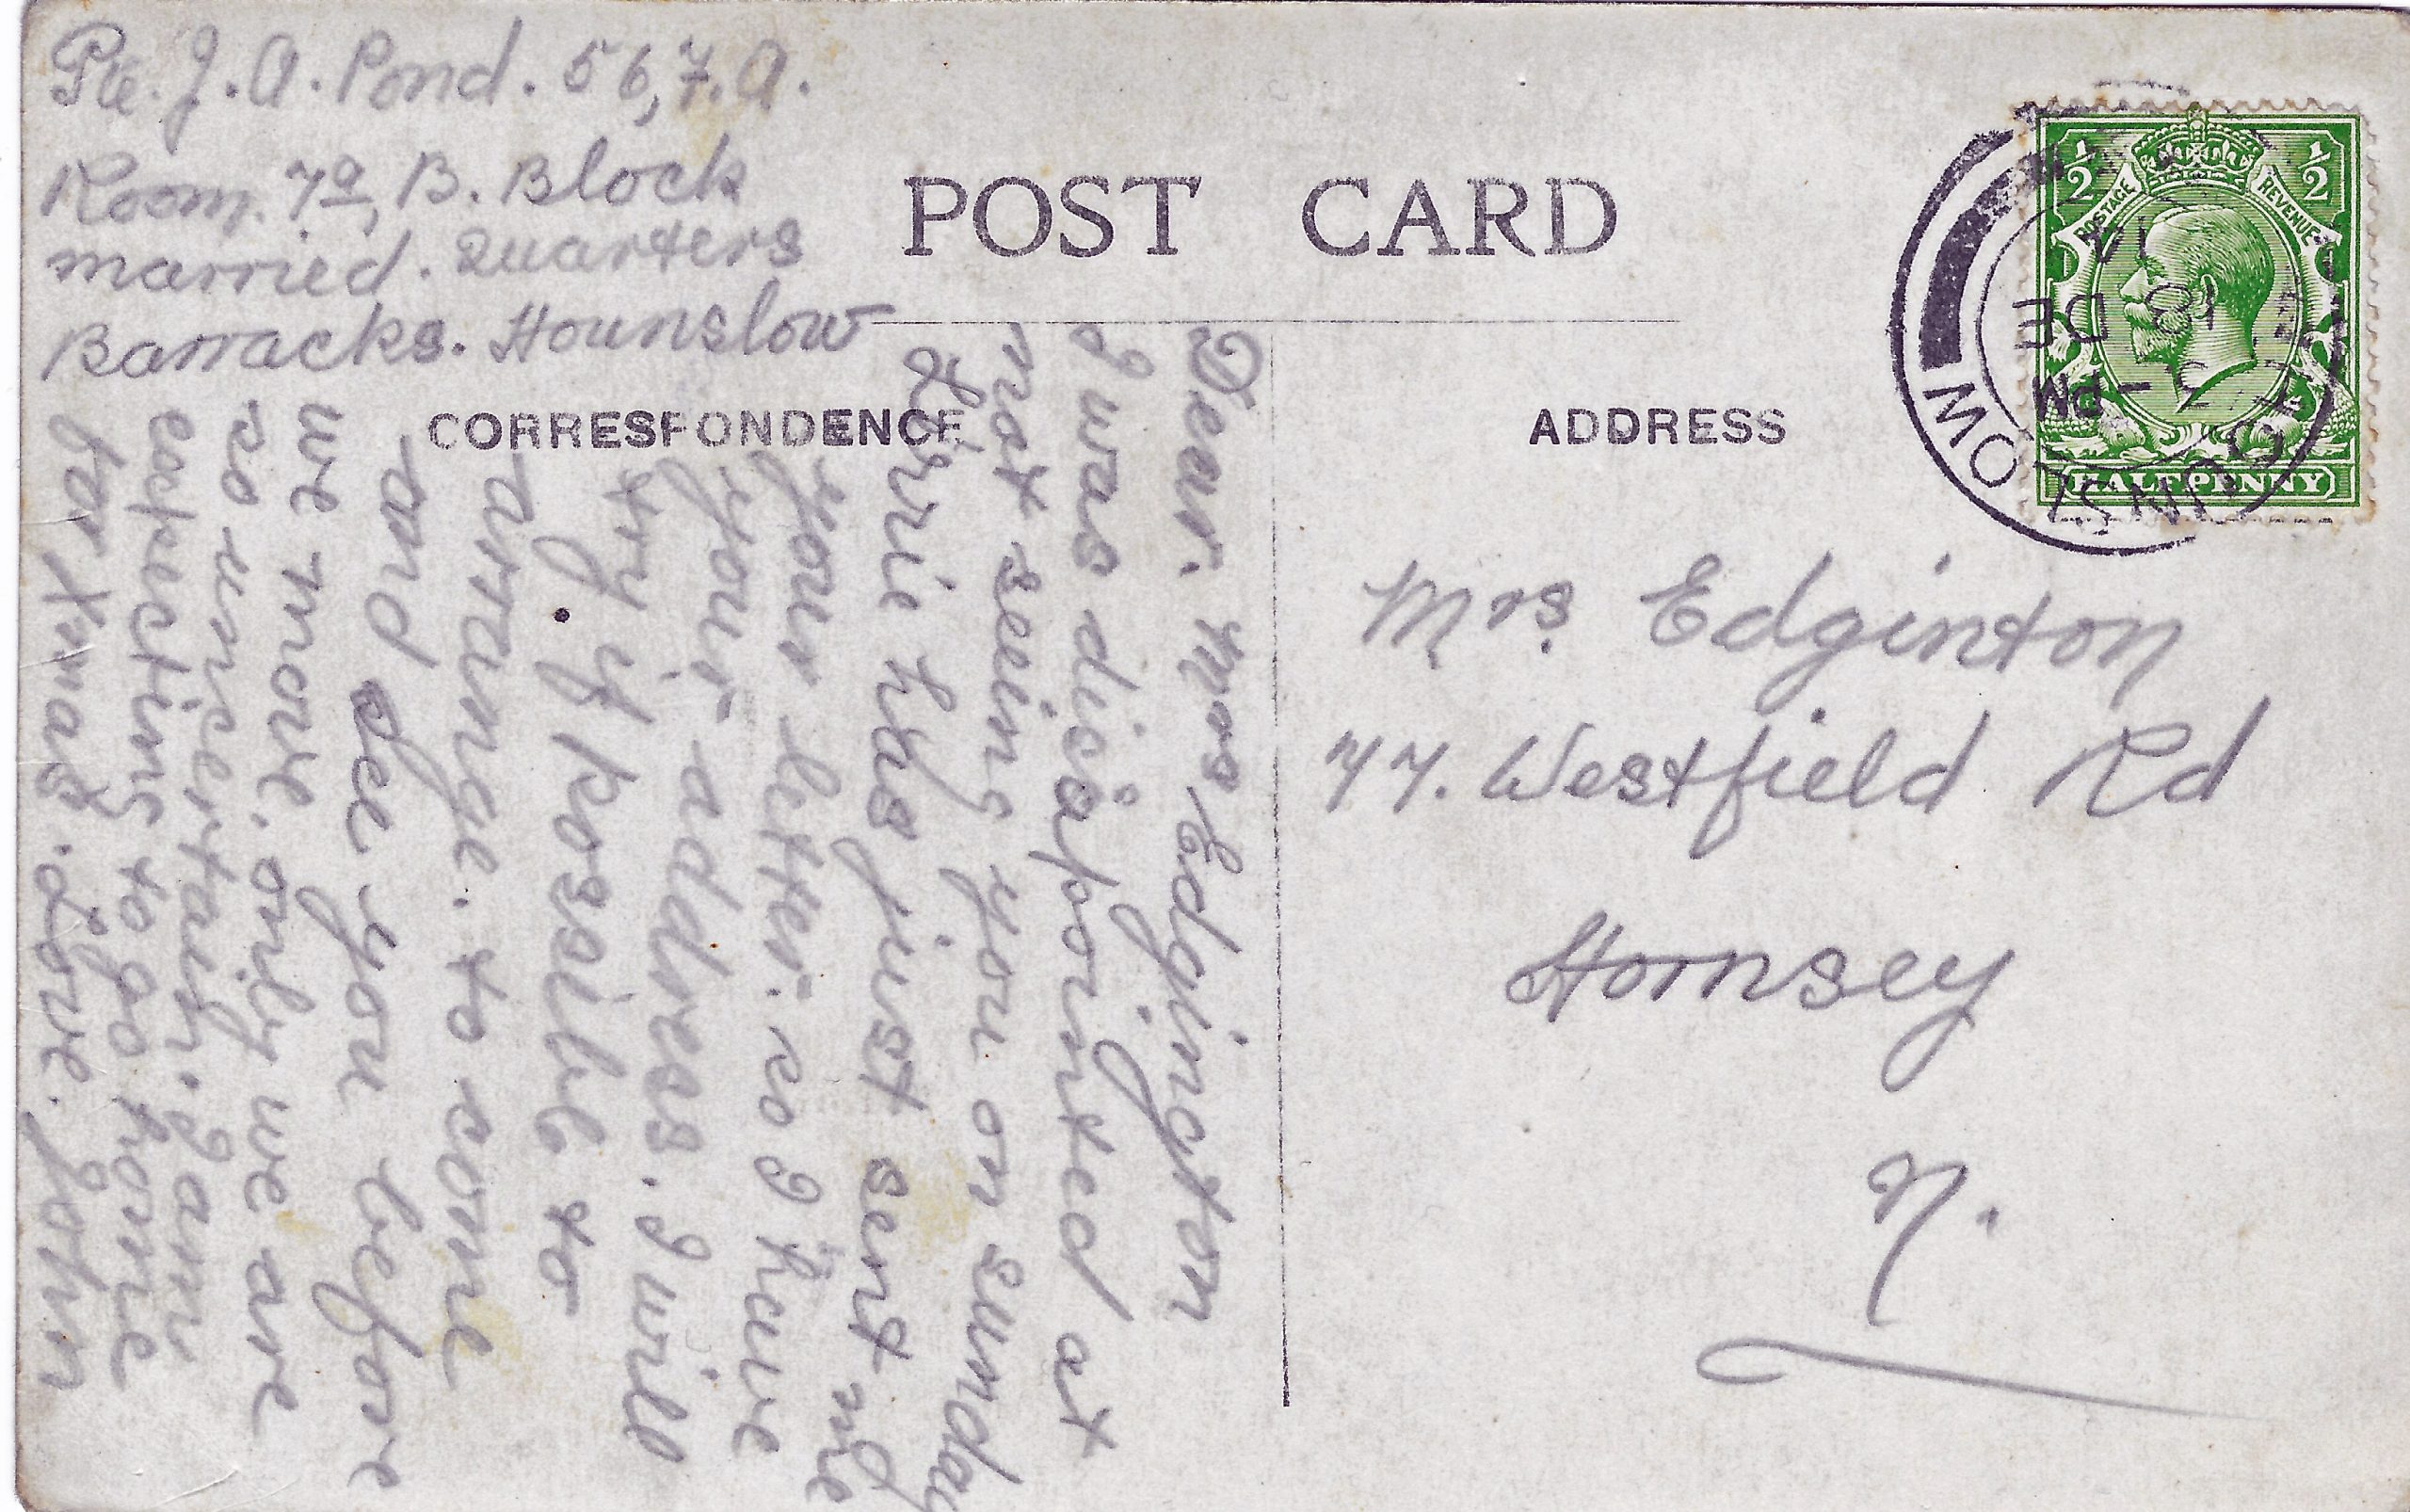 Pte. J. A. Pond. 567. A.
Room. 7a, B. Block
married. Quarters
Barracks. Hounslow
POST CARD
CORRESPONDENCE
ADDRESS
Dear. Mrs Edgington
I was disapointed at
not seeing you on sunday
has just sent me
your letter. so I have
your address. I will
try if possible to
arrange. to come
and see you before
we move. only we are
so uncertain. I am
expecting to go home
for Xmas. Love. John
Mrs. Edginton
77. Westfield Rd
Hornsey
N.
HOUNSLOW
5 - PM
18 DE
14
POSTAGE REVENUE
1/2 1/2
HALFPENNY